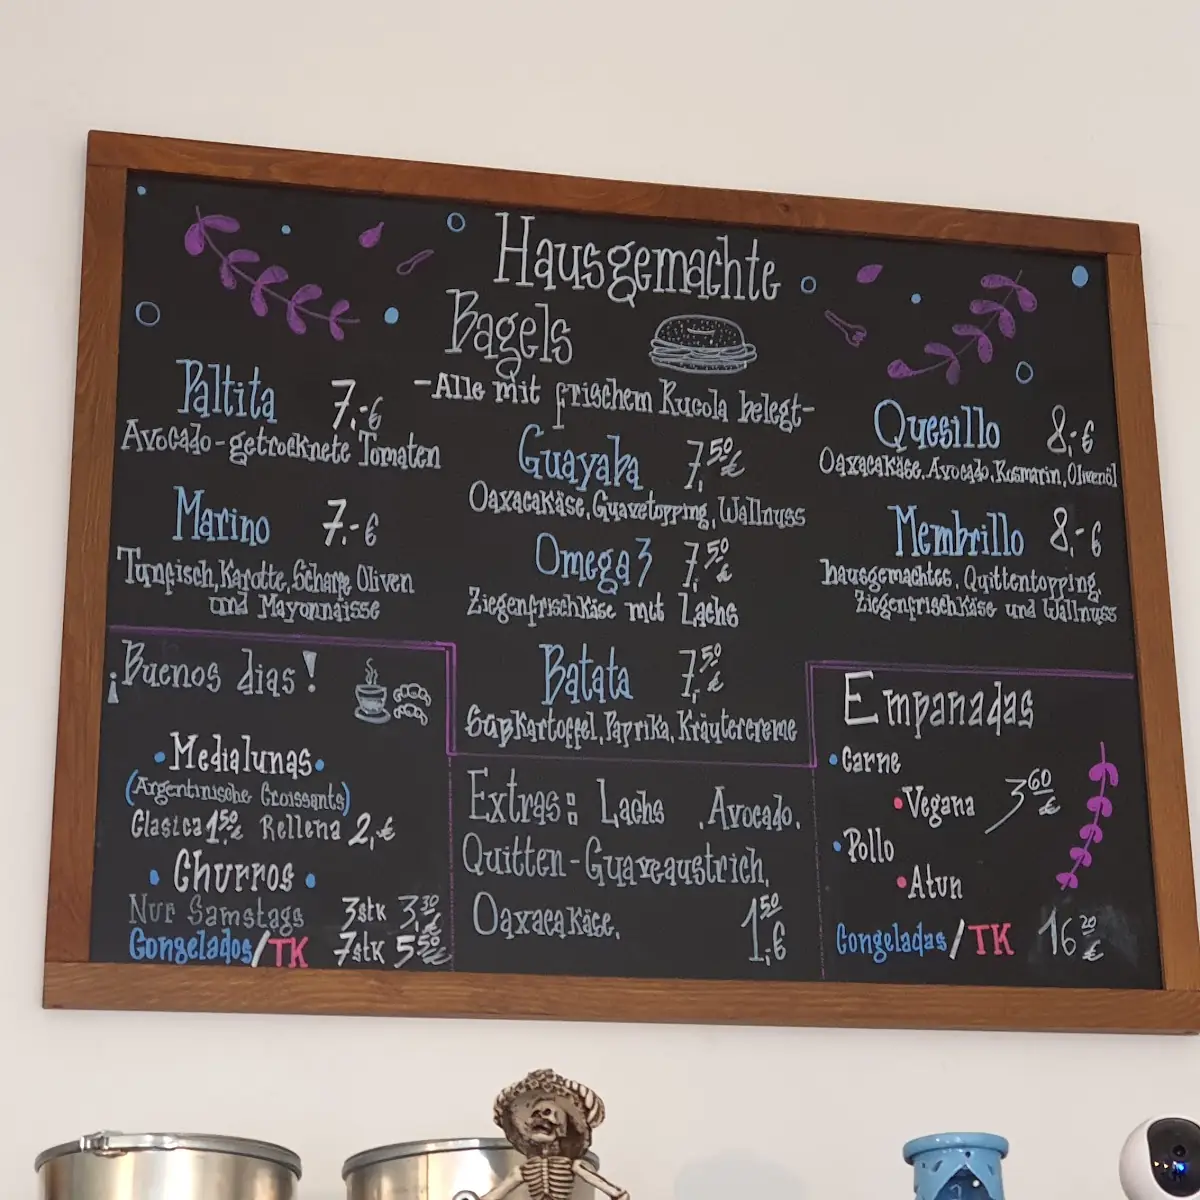 Hausgemachte
Bagels
-Alle mit frischem Rucola belegt-
Paltita 7,-€
Avocado-getrocknete Tomaten
Marino 7,-€
Tunfisch, Karotte, Scharfe Oliven
und Mayonnaisse
Guayaba 7,50€
Oaxacakäse, Guavetopping, Wallnuss
Omega 3 7,50€
Ziegenfrischkäse mit Lachs
Batata 7,50€
Süßkartoffel, Paprika, Kräutercreme
Quesillo 8,-€
Oaxacakäse, Avocado, Rosmarin, Olivenöl
Membrillo 8,-€
hausgemachtes, Quittentopping,
Ziegenfrischkäse und Wallnuss
¡Buenos dias!
•Medialunas•
(Argentinische Croissants)
Clasica 1,50€ Rellena 2,-€
• Churros •
Nur Samstags 3stk 3,30€
Congelados/TK 7stk 5,50€
Extras: Lachs, Avocado,
Quitten-Guaveaustrich,
Oaxacakäse, 1,50€
Empanadas
•Carne
•Vegana 3,60€
•Pollo
•Atun
Congeladas/TK 16,20€